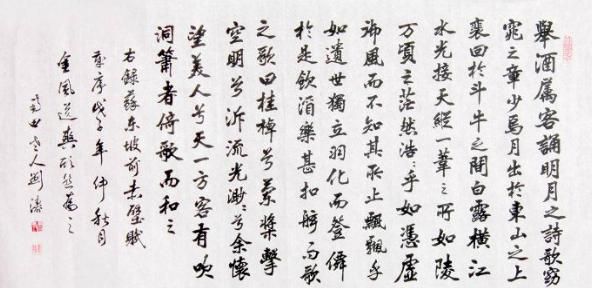 舉酒属客誦明月之詩歌窈
窕之章少焉月出於東山之上
裵回於斗牛之間白露橫江
水光接天縱一葦之所如陵
万頃之茫然浩々乎如憑虛
御風而不知其所止飄飄乎
如遺世獨立羽化而登僊
於是飲酒樂甚扣舷而歌
之歌曰桂棹兮蘭槳擊
空明兮泝流光渺々兮余懷
望美人兮天一方客有吹
洞簫者倚歌而和之
右錄蘇东坡前赤壁賦
歲序戊子年仲秋月
金風送爽
人劉濤